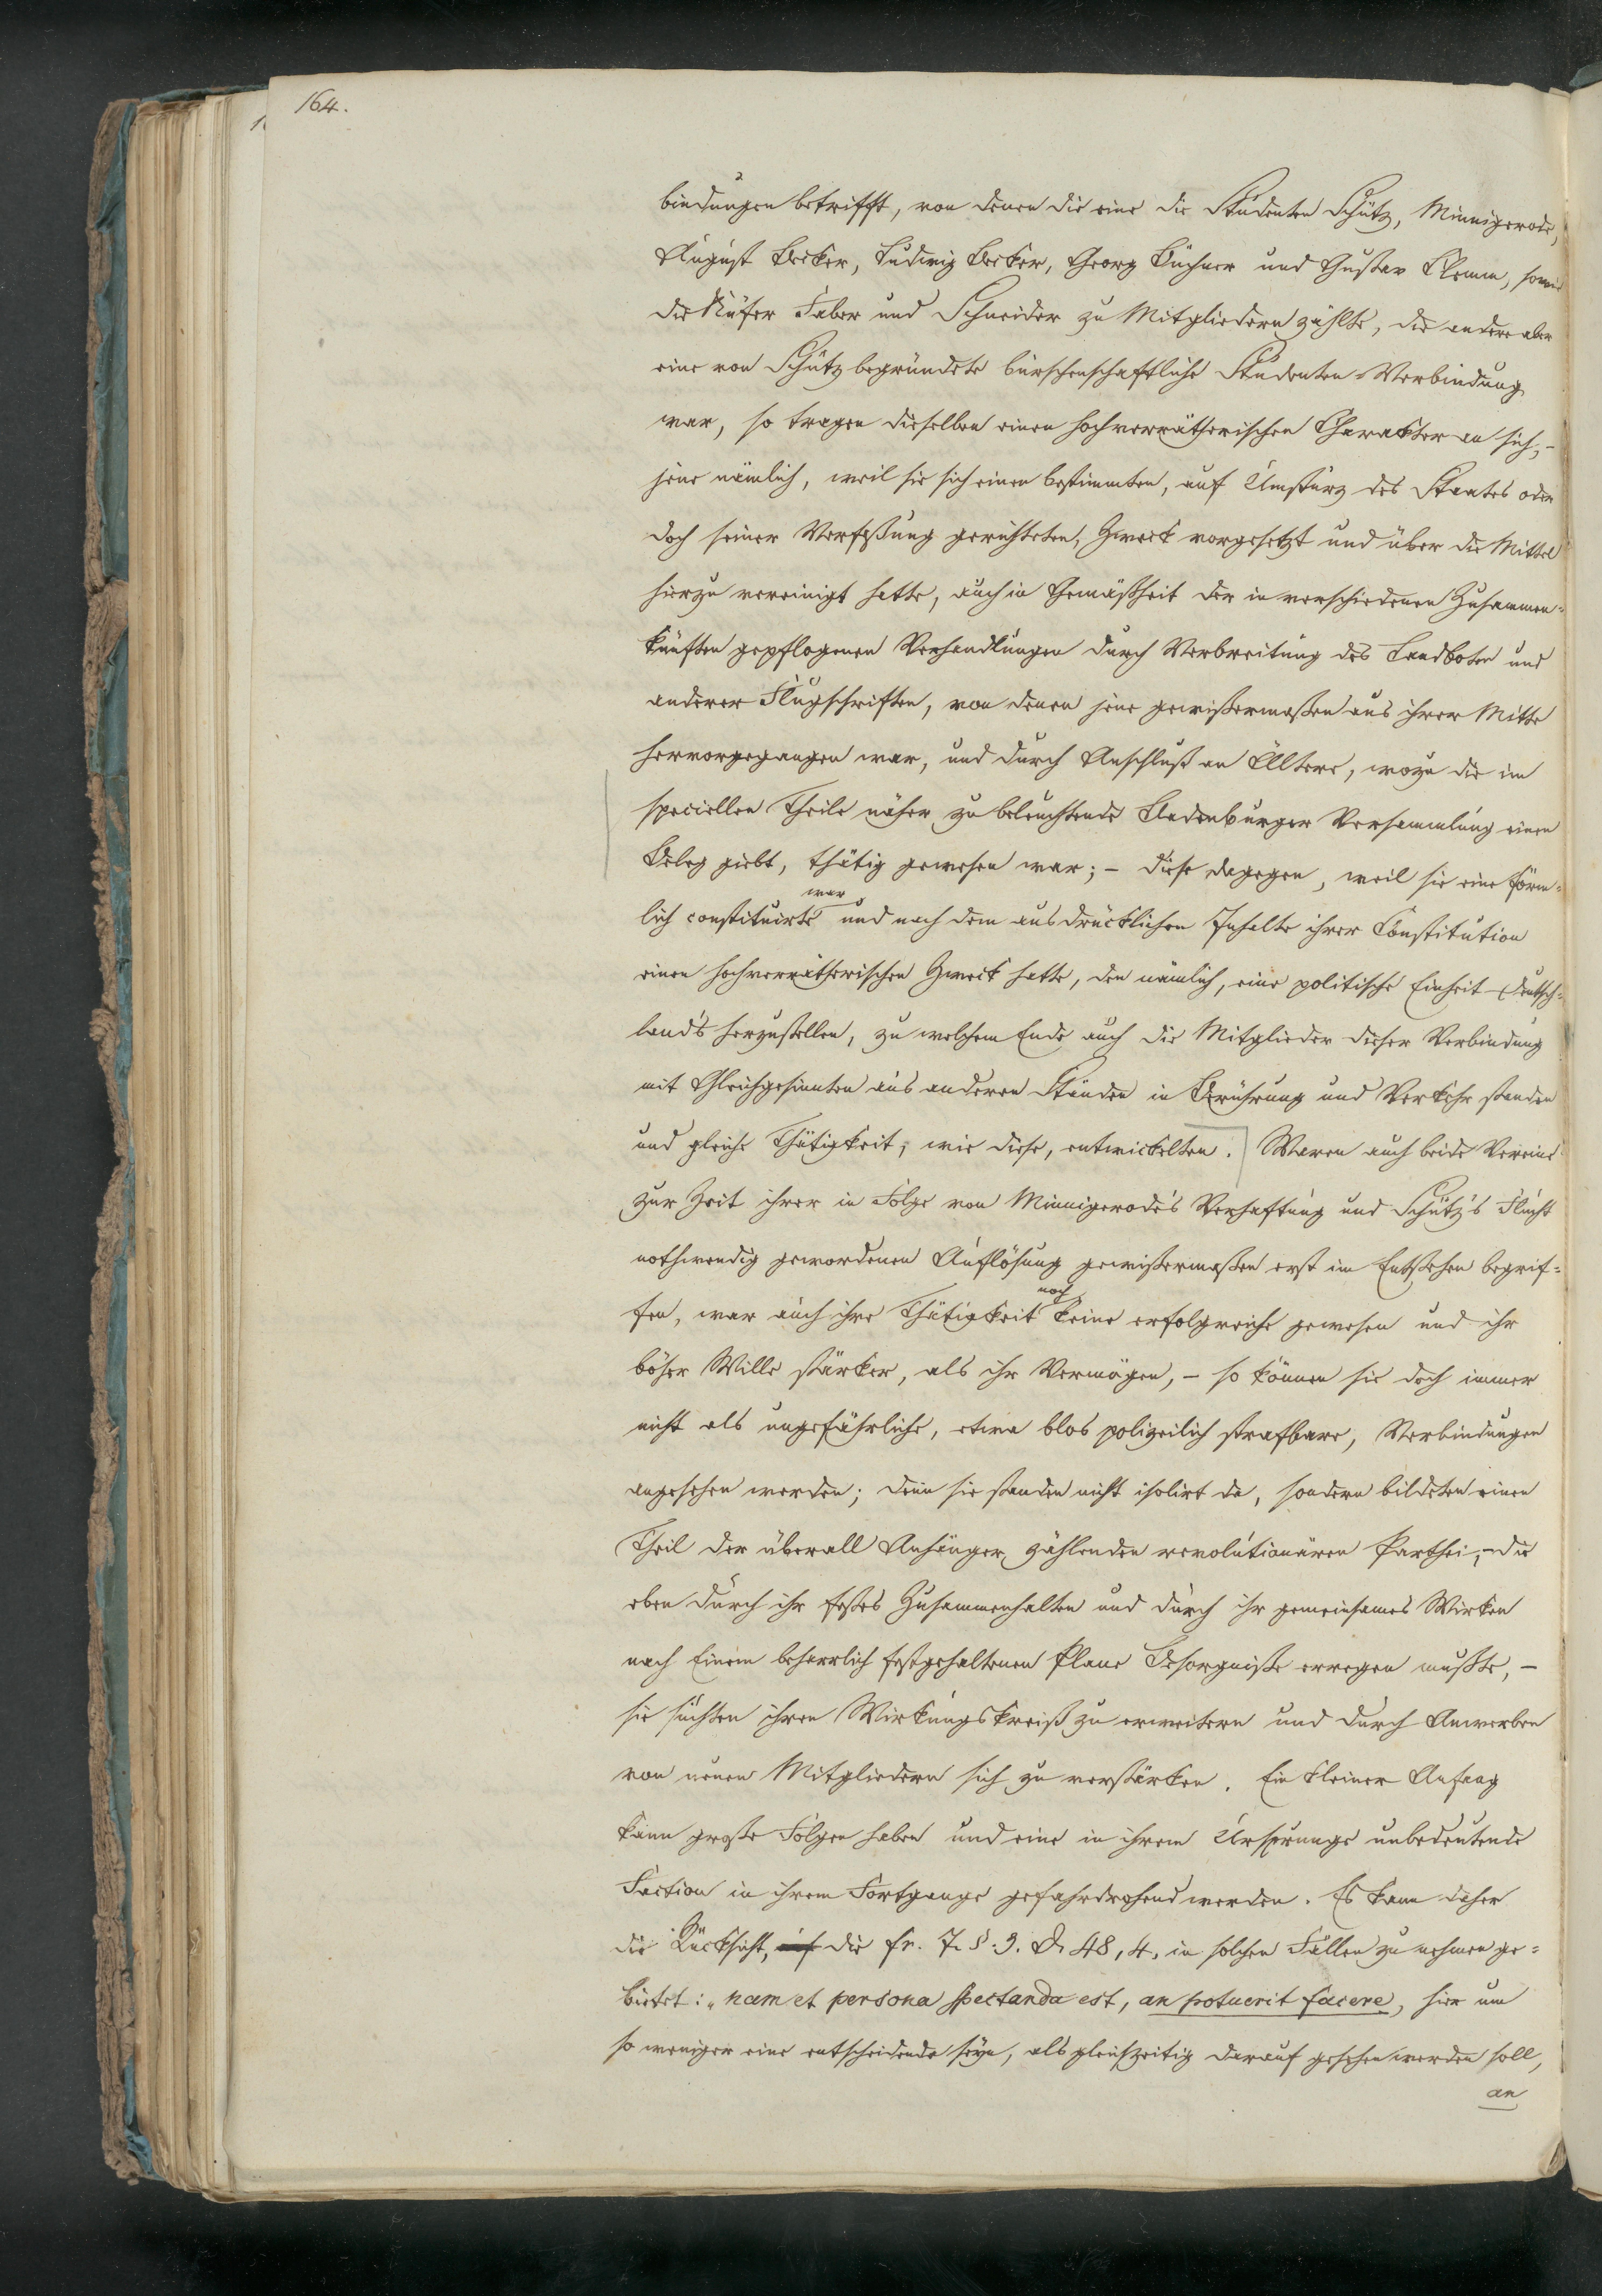 164.
bindungen betrifft, von denen die eine die Studenten Schütz, Minnigerode,
August Becker, Ludwig Becker, Georg Büchner und Gustav Clemm, sowie
die Küfer Faber und Schneider zu Mitgliedern zählte, die andere aber
eine von Schütz begründete burschenschaftliche Studenten-Verbindung
war, so tragen dieselben einen hochverrätherischen Charakter an sich, –
jene nämlich, weil sie sich einen bestimmten, auf Umsturz des Staates oder
doch seiner Verfaßung gerichteten, Zweck vorgesetzt und über die Mittel
hierzu vereinigt hatte, auch in Gemäßheit der in verschiedenen Zusammen=
künften gepflogenen Verhandlungen durch Verbreitung des Landboten und
anderer Flugschriften, von denen jene gewißermaßen aus ihrer Mitte
hervorgegangen war, und durch Anschluß an Ältere, wozu die im
speciellen Theile näher zu beleuchtende Badenburger Versammlung einen
Beleg giebt, thätig gewesen war; – diese dagegen, weil sie eine förm=
war
lich constituirte und nach dem ausdrücklichen Inhalte ihrer Constitution
einen hochverrätherischen Zweck hatte, den nämlich, eine politische Einheit Deutsch=
lands herzustellen, zu welchem Ende auch die Mitglieder dieser Verbindung
mit Gleichgesinnten aus anderen Ständen in Berührung und Verkehr standen
und gleiche Thätigkeit, wie diese, entwickelten. Waren auch beide Vereine
zur Zeit ihrer in Folge von Minnigerode's Verhaftung und Schütz's Flucht
nothwendig gewordenen Auflösung gewißermaßen erst im Entstehen begrif=
noch
fen, war auch ihre Thätigkeit keine erfolgreiche gewesen und ihr
böser Wille stärker, als ihr Vermögen, – so können sie doch immer
nicht als ungefährliche, etwa blos polizeilich strafbare, Verbindungen
angesehen werden; denn sie standen nicht isolirt da, sondern bildeten einen
Theil der überall Anhänger zählenden revolutionären Parthei, – die
eben durch ihr festes Zusammenhalten und durch ihr gemeinsames Wirken
nach Einem beharrlich festgehaltenen Plane Besorgniße erregen mußte, –
sie suchten ihren Wirkungskreiß zu erweitern und durch Anwerben
von neuen Mitgliedern sich zu verstärken. Ein kleiner Anfang
kann große Folgen haben und eine in ihrem Ursprunge unbedeutende
Faction in ihrem Fortgange gefahrdrohend werden. Es kann daher
die Rücksicht, die fr. 7. §. 3. D. 48, 4. in solchen Fällen zu nehmen ge=
bietet: „nam et persona spectanda est, an potuerit facere, hier um
so weniger eine entscheidende seyn, als gleichzeitig darauf gesehen werden soll,
an